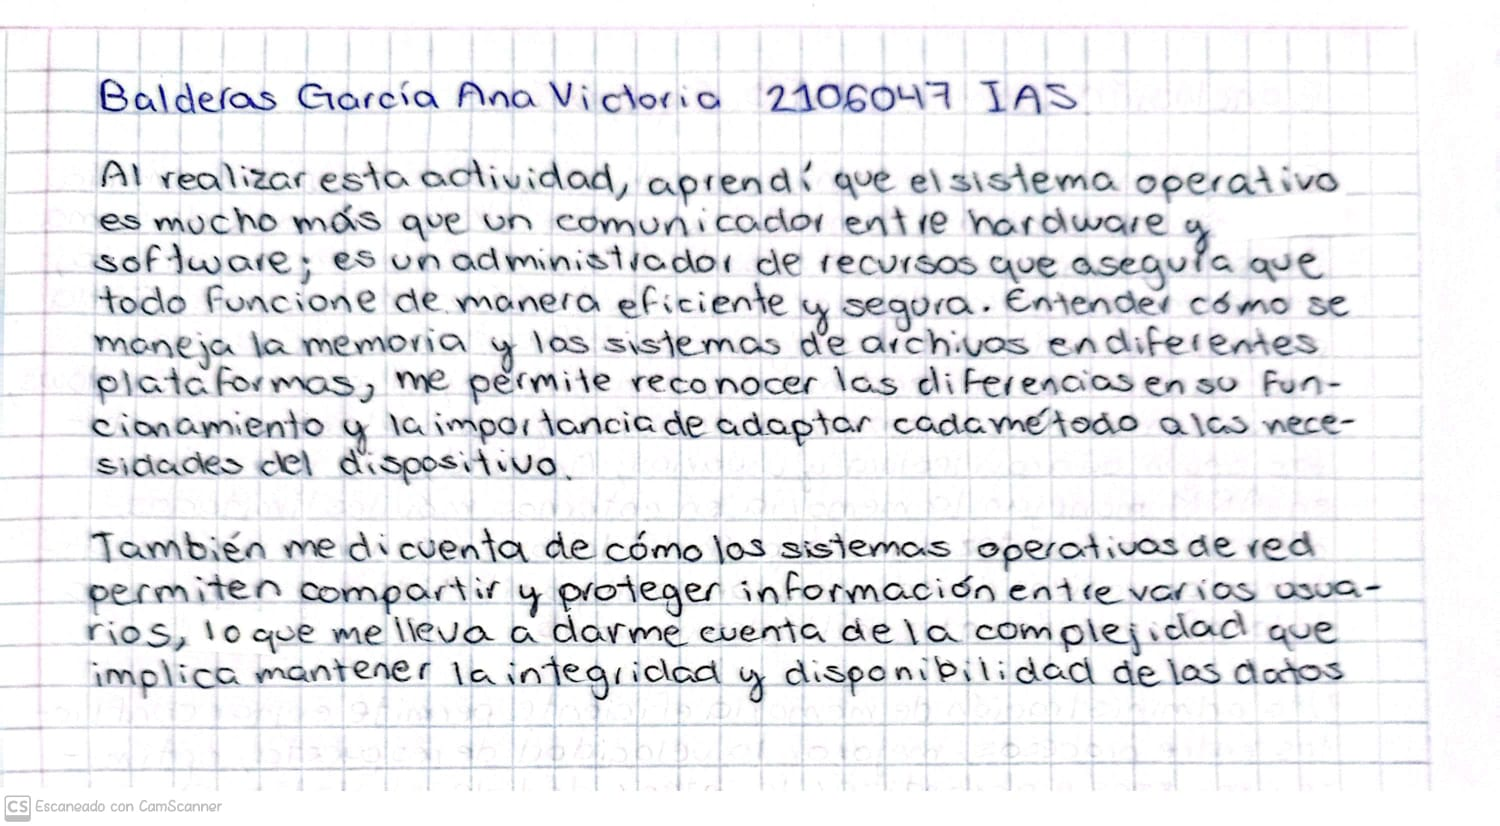 Balderas García Ana Victoria 2106047 IAS
Al realizar esta actividad, aprendí que el sistema operativo
es mucho más que un comunicador entre hardware y
software; es un administrador de recursos que asegura que
todo funcione de manera eficiente y segura. Entender cómo se
maneja la memoria y los sistemas de archivos en diferentes
plataformas, me permite reconocer las diferencias en su fun-
cionamiento y la importancia de adaptar cada método a las nece-
sidades del dispositivo.
También me di cuenta de cómo los sistemas operativos de red
permiten compartir y proteger información entre varios usua-
rios, lo que me lleva a darme cuenta de la complejidad que
implica mantener la integridad y disponibilidad de los datos
CS Escaneado con CamScanner